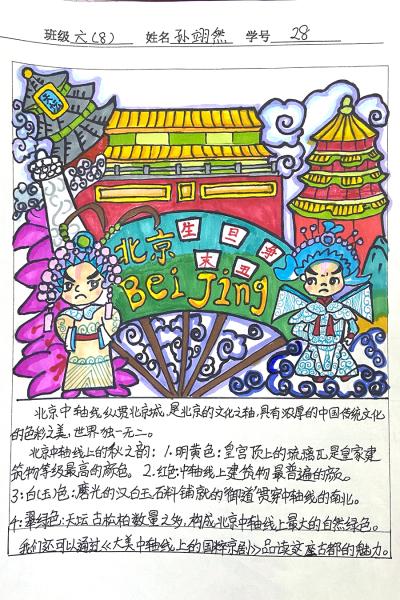 班级 六(8) 姓名 孙翊然 学号 28
北京
生旦净
末丑
BeiJing
北京中轴线纵贯北京城,是北京的文化之轴,具有浓厚的中国传统文化
的色彩之美,世界独一无二。
北京中轴线上的秋之韵:1.明黄色:皇宫顶上的琉璃瓦是皇家建
筑物等级最高的颜色。2.红色:中轴线上建筑物最普遍的颜。
3:白(玉)色:磨光的汉白玉石料铺就的御道贯穿中轴线的南北。
4:翠绿色:天坛古松柏数量之多,构成北京中轴线上最大的自然绿色。
我们还可以通过《大美中轴线上的国粹京剧》品读这座古都的魅力。